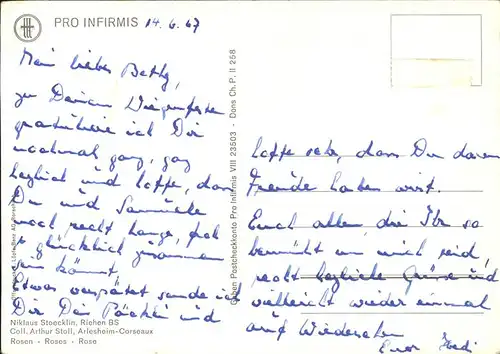 PRO INFIRMIS 14.6.67
Mein liebes Bethy,
zu Deinem Wiegenfeste
gratuliere ich Dir
nochmal ganz, ganz
herzlich und hoffe, dass
Du und
noch recht lange,
so glücklich zusammen
sein könnt.
Etwas verspätet sende ich
Dir Dein Päckli und
Niklaus Stoecklin, Riehen BS
Coll. Arthur Stoll, Arlesheim-Corseaux
Rosen - Roses - Rose
Gaben Postcheckkonto Pro Infirmis VIII 23503 - Dons Ch. P. II 258
hoffe sehr, dass Du daran
Freude haben wirst.
Euch allen, die Ihr so
bemüht um mich seid,
recht herzliche Grüsse und
vielleicht wieder einmal
auf Wiedersehen
Eure